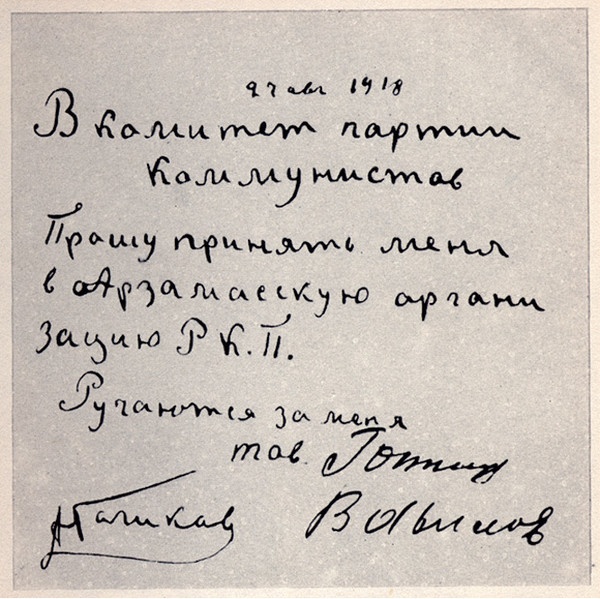 27 авг 1918
В комитет партии
коммунистов
Прошу принять меня
в Арзамасскую органи
зацию Р К. П.
Ручаются за меня
тов. Гоппиус
Вавилов
АГоликов